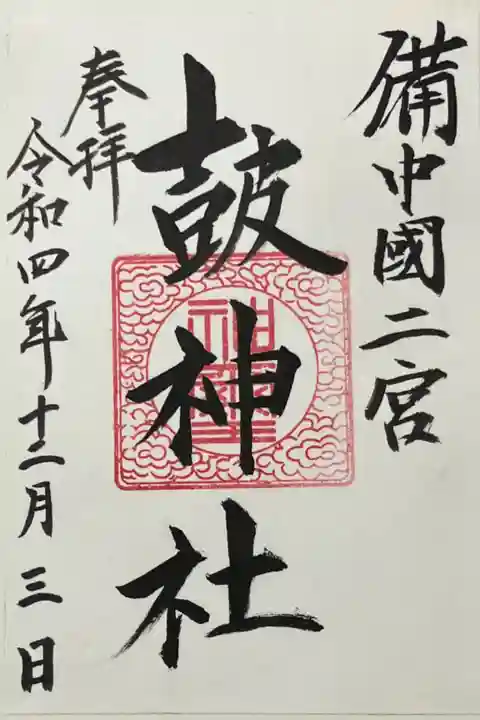 備中國二宮
鼓神社
奉拝
令和四年十二月三日